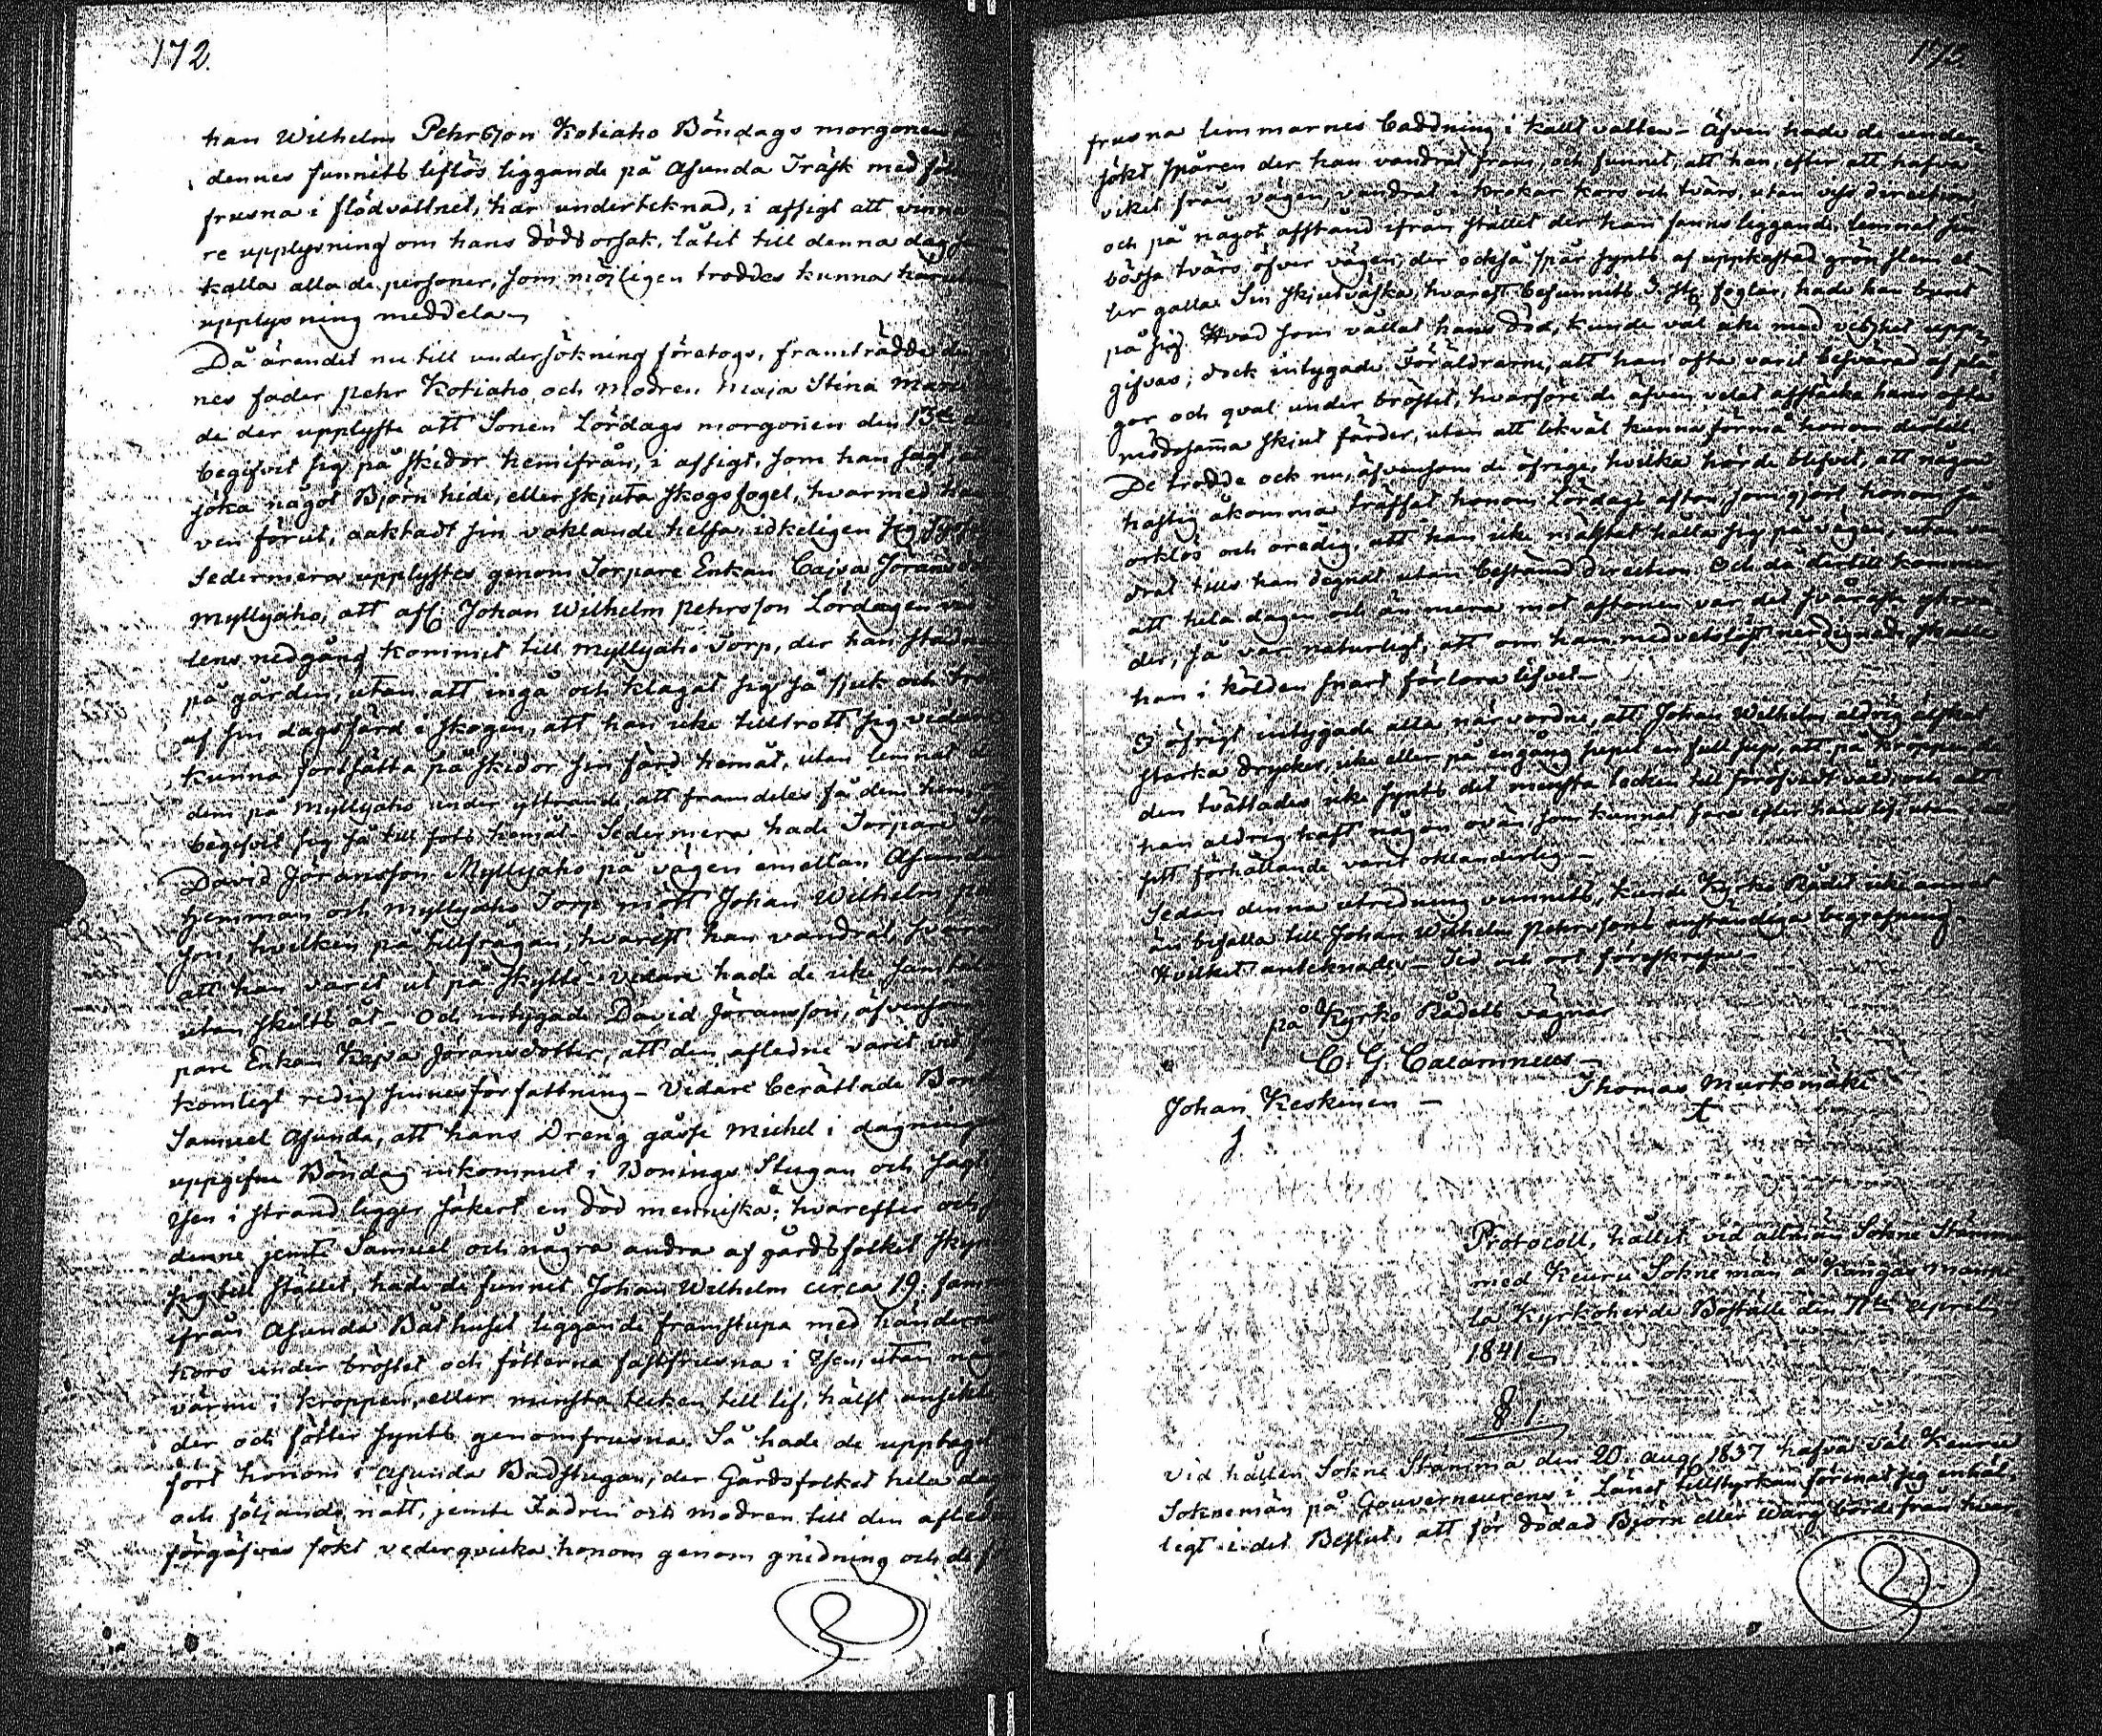 172.
han Wilhelm Pehrsson Kotiaho Böndags morgonen
dennes funnits liflös liggande på Asunda Träsk med
frusna i flödvattnet, har undertecknad, i afsigt att vinna
re upplysning om hans dödsorsak, låtit till denna dag
kalla alla de personer, som möjligen troddes kunna
upplysning meddela
Då ärendet nu till undersökning företogs, framträdde
nes fader Pehr Kotiaho och Modren Maja Stina
de der upplyste att Sonen Lördags morgonen den 13de
begifvit sig på skidor hemifrån, i afsigt, som han sagt,
söka något Björn hide, eller skjuta skogsfogel, hvarmed
ven förut, oaktadt sin vaklande helsa idkeligen sig
Sedermera upplystes genom Torpare Enkan Cajsa Jöransdotter
Myllyaho, att afl. Johan Wilhelm Pehrsson Lördagen
lens nedgång kommit till Myllyaho Torp, der han
på gården, utan att ingå och klagat sig så sjuk och
af sin dagsfärd i skogen, att han icke tilltrott sig vidare
kunna fortsätta på skidor sin färd hemåt, utan lemnat
dem på Myllyaho under yttrande, att framdeles få dem
begifvit sig så till fots hemåt. Sedermera hade Torpare
David Jöransson Myllyaho på vägen emellan Asunda
hemman och Myllyaho Torp mött Johan Wilhelm
son, hvilken på tillfrågan, hvarest han vandrat,
att han varit ut på skytte. Vidare hade de icke
utan skilts åt – Och intygade David Jöransson, äfvensom
pare Enkan Kajsa Jöransdotter, att den aflidne varit
komligt redig sinnesförfattning – Vidare berättade
Samuel Asunda, att hans Dreng gåsse Michel i
uppgifne Böndag inkommit i Bonings Stugan och
Isen i strand ligger säkert en död menniska; hvarefter
denne jemte Samuel och några andra af gårdsfolket
sig till stället, hade de funnit Johan Wilhelm circa 19
ifrån Asunda Båthuset liggande framstupa med händerna
kors under bröstet och fötterna fastfrusna i Isen, utan
värme i kroppen, eller minsta tecken till lif, hälst
der och fötter synts genomfrusna. Så hade de upptagit
fört honom i Asunda Badstugan, der Gårdsfolket hela
och följande natt, jemte Fadren och modren till den
förgäfves sökt vederqvicka honom genom gnidning och
frusna lemmarnes baddning i kallt vatten – Äfven hade de under-
sökt spåren der han vandrat fram, och funnit, att han, efter att hafva
vikit från vägen, vandrat i krokar kors och tvärs utan viss direction,
och på något afstånd ifrån stället der han fanns liggande, lemnat sin
bössa tvärs öfver vägen, der också spår synts af uppkastad grön slem el-
ler galla. Sin skjutväska, hvarest befunnits 3 st. foglar, hade han burit
på sig. Hvad som vållat hans död, kunde väl icke med visshet upp-
gifvas; dock intygade Föräldrarne, att han ofta varit besvärad af plå-
gor och qval under bröstet, hvarföre de äfven velat afstärka hans ofta
mödosamma skjut färder, utan att likväl kunna förmå honom dertill.
De trodde ock nu, äfvensom de öfrige, hvilka hörde blifvit, att någon
hastig åkomma träffat honom Lördags afton, som gjort honom så
orklös och oredig, att han icke mäktat hålla sig på vägen, utan van-
drat tills han dignat utan bestämd direction. Och då dertill kommer
att hela dagen och än mera mot aftonen var det svåraste
der, så var naturligt, att om han medvetslöst nerdignade skulle
han i kölden snart förlora lifvet –
I öfrigt intygade alla närvardne, att Johan Wilhelm aldrig älskat
starka drycker, icke eller på en gång supit en full sup, att på kroppen, då
den tvättades icke synts det minsta tecken till föröfvadt våld, och att
han aldrig haft någon ovän, som kunnat fara efter hans lif, utan
sitt förhållande varit oklanderlig –
Sedan denna utredning vunnits, kunde Kyrko Rådet icke annat
än befalla till Johan Wilhelm Pehrssons anständiga begrafning.
Hvilket antecknades – Tid och ort föreskrefne –
på Kyrko Rådets vägnar
C. G. Calamnius –
Johan Keskinen –
Thomas Murtomäki
Protocoll, hållit vid allmän Sokne Stämma
med Keuru Sokne män å Kangas
la Kyrkoherde Boställe den 11te April
1841
§ 1.
Vid hållen Sokne Stämma den 20. aug. 1837 hafva väl Keuru
Soknemän på Gouverneurens i Länet tillstyrkan förenat sig enhäl-
ligt i det Beslut, att för dödad Björn eller Warg borde från hvar-